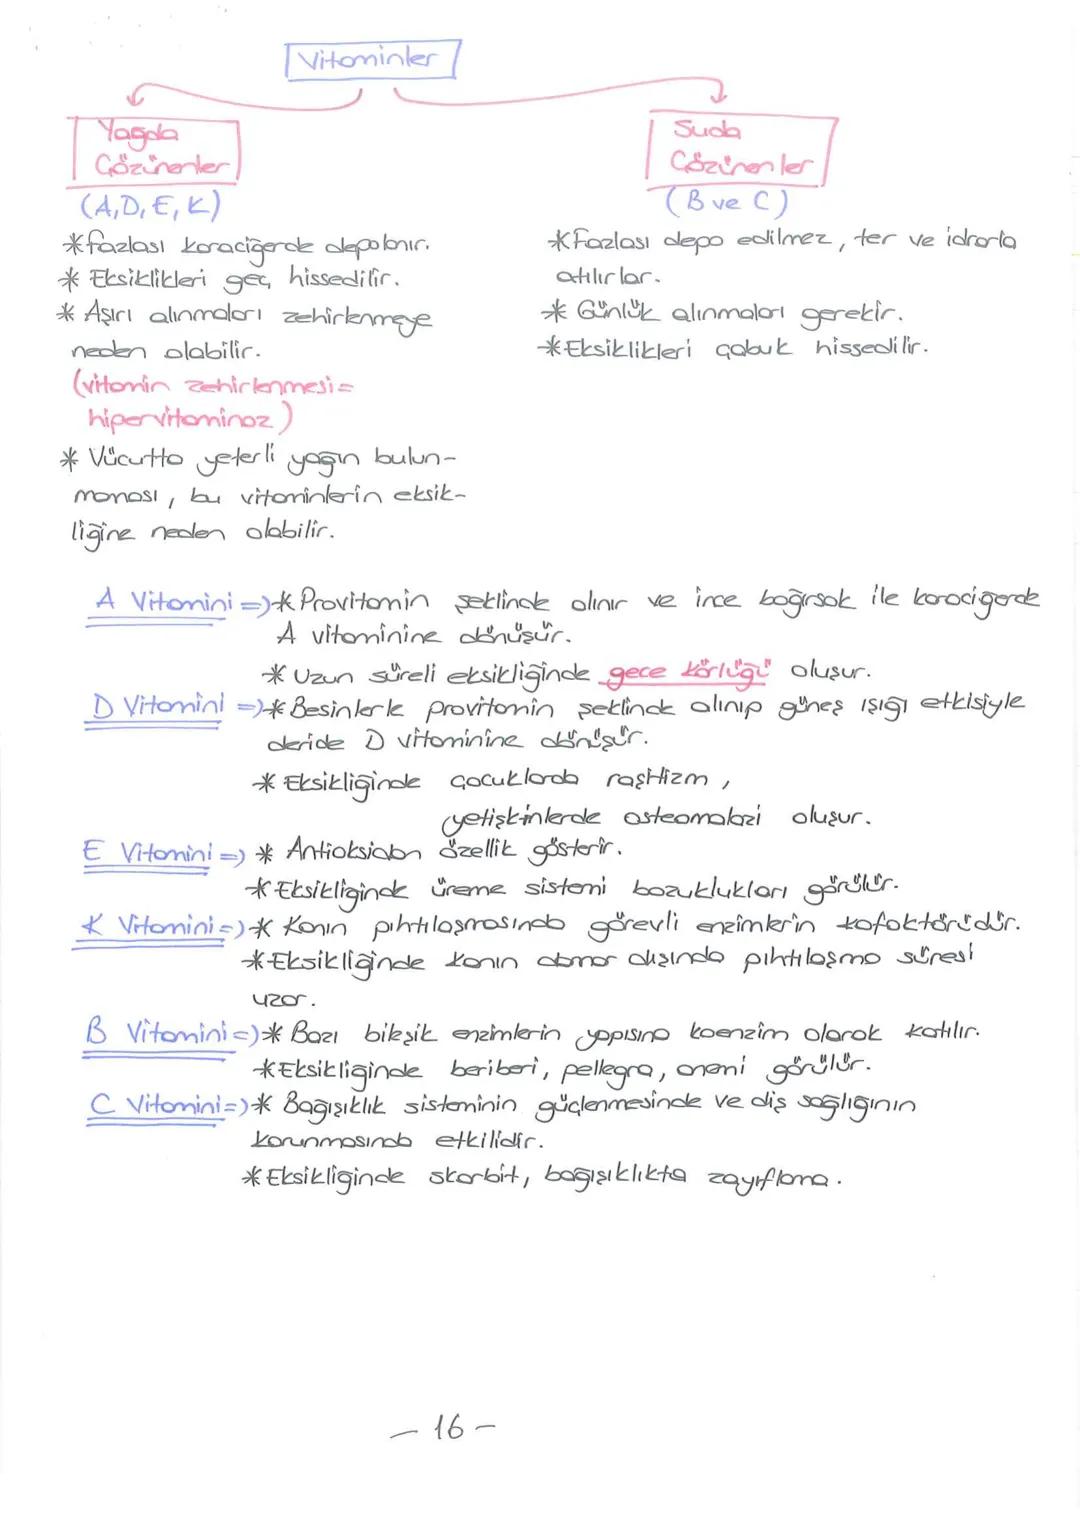 Vitaminler
Yağda
Çözünenler
(A,D,E,K)
*fazlası karaciğerde depolanır.
* Eksiklikleri geç hissedilir.
* Aşırı alınmaları zehirlenmeye
neden olabilir.
(vitamin zehirlenmesi=
hipervitaminoz)
* Vücutta yeterli yağın bulun-
maması, bu vitaminlerin eksik-
liğine neden olabilir.
Suda
Çözünenler
(B ve C)
*Fazlası depo edilmez, ter ve idrarla
atılırlar.
* Günlük alınmaları gerekir.
*Eksiklikleri çabuk hissedilir.
A Vitamini =>* Provitamin şeklinde alınır ve ince bağırsak ile karaciğerde
A vitaminine dönüşür.
* Uzun süreli eksikliğinde gece körlüğü oluşur.
D Vitamini =>* Besinlerle provitamin şeklinde alınıp güneş ışığı etkisiyle
deride D vitaminine dönüşür.
* Eksikliğinde çocuklarda raşitizm,
yetişkinlerde osteomalazi oluşur.
E Vitamini => * Antioksidan özellik gösterir.
*Eksikliğinde üreme sistemi bozuklukları görülür.
K Vitamini =>* Kanın pıhtılaşmasında görevli enzimlerin kofaktörüdür.
*Eksikliğinde kanın damar dışında pıhtılaşma süresi
uzar.
B Vitamini =>* Bazı bileşik enzimlerin yapısına koenzim olarak katılır.
*Eksikliğinde beriberi, pellegra, anemi görülür.
C Vitamini=>* Bağışıklık sisteminin güçlenmesinde ve diş sağlığının
korunmasında etkilidir.
*Eksikliğinde skorbit, bağışıklıkta zayıflama.
- 16 -